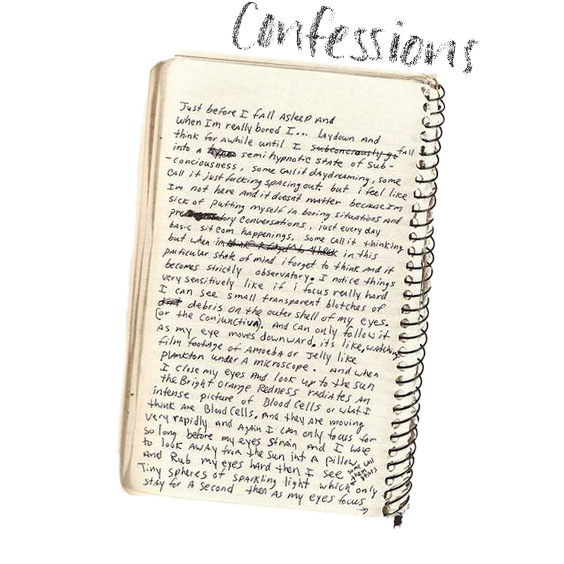 Confessions
Just before I fall asleep and
when I'm really bored I... laydown and
think for awhile until I subconciously go fall
into a semi hypnotic state of sub-
-conciousness, some call it daydreaming, some
call it just fucking spacing out but i feel like
Im not here and it doesnt matter because Im
sick of putting myself in boring situations and
conversations, just every day
basic sitcom happenings, some call it thinking
but when in in this
particular state of mind i forget to think and it
becomes stricly observatory. I notice things
very sensitively like if i focus really hard
I can see small transparent blotches of
debris on the outer shell of my eyes.
(or the conjunctiva). and can only follow it
As my eye moves downward, it's like, watching
film footage of Amoeba or Jelly like
plankton under a microscope. and when
I close my eyes and look up to the sun
the Bright orange Redness radiates an
intense picture of Blood cells or what I
think are Blood cells. and they are moving
very rapidly and again I can only focus for
so long before my eyes strain and I have
to look away from the sun into a pillow
and Rub my eyes hard then I see some call them stars
Tiny spheres of sparkling light which only
stay for a second then as my eyes focus